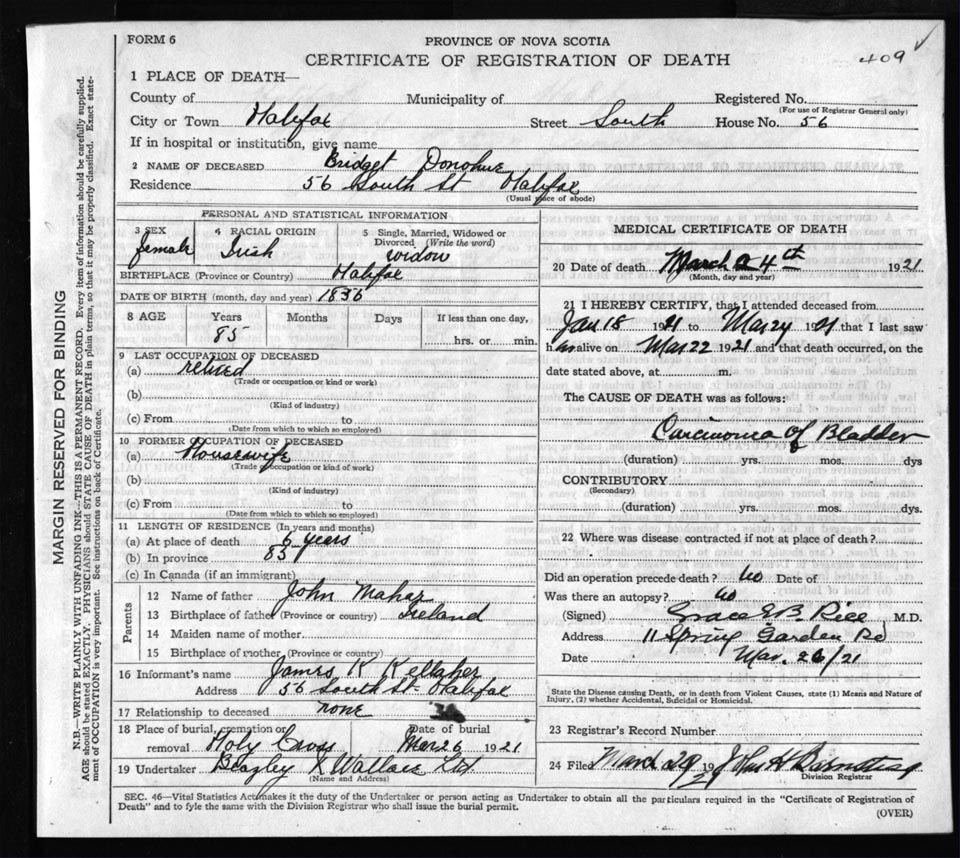 FORM 6
PROVINCE OF NOVA SCOTIA
CERTIFICATE OF REGISTRATION OF DEATH
409
1 PLACE OF DEATH—
County of Municipality of Registered No.
(For use of Registrar General only)
City or Town Halifax Street South House No. 56
If in hospital or institution, give name
2 NAME OF DECEASED Bridget Donohue
Residence 56 South St Halifax
(Usual place of abode)
PERSONAL AND STATISTICAL INFORMATION
3 SEX 4 RACIAL ORIGIN 5 Single, Married, Widowed or Divorced (Write the word)
female Irish widow
BIRTHPLACE (Province or Country) Halifax
DATE OF BIRTH (month, day and year) 1836
8 AGE Years Months Days If less than one day,
85 hrs. or min.
9 LAST OCCUPATION OF DECEASED
(a) retired
(Trade or occupation or kind or work)
(b)
(Kind of industry)
(c) From to
(Date from which to which so employed)
10 FORMER OCCUPATION OF DECEASED
(a) Housewife
(Trade occupation or kind of work)
(b)
(Kind of industry)
(c) From to
(Date from which to which so employed)
11 LENGTH OF RESIDENCE (In years and months)
(a) At place of death 6 years
(b) In province 85
(c) In Canada (if an immigrant)
Parents
12 Name of father John Mahar
13 Birthplace of father (Province or country) Ireland
14 Maiden name of mother
15 Birthplace of mother (Province or country)
16 Informant's name James K Kellaher
Address 56 South St Halifax
17 Relationship to deceased none
18 Place of burial, cremation or removal Holy Cross Date of burial Mar 26 1921
19 Undertaker Beazley & Wallace Ltd
(Name and Address)
MEDICAL CERTIFICATE OF DEATH
20 Date of death March 24th 1921
(Month, day and year)
21 I HEREBY CERTIFY, that I attended deceased from
Jan 18 1921 to Mar 24 1921 that I last saw
her alive on Mar 22 1921 and that death occurred, on the
date stated above, at m.
The CAUSE OF DEATH was as follows:
Carcinoma of Bladder
(duration) yrs. mos. dys
CONTRIBUTORY
(Secondary)
(duration) yrs. mos. dys.
22 Where was disease contracted if not at place of death?
Did an operation precede death? no Date of
Was there an autopsy? no
(Signed) Grace E.B. Rice M.D.
Address 11 Spring Garden Rd
Date Mar. 26/21
State the Disease causing Death, or in death from Violent Causes, state (1) Means and Nature of
Injury, (2) whether Accidental, Suicidal or Homicidal.
23 Registrar's Record Number
24 Filed March 29 1921 John H Barnstead
Division Registrar
SEC. 46—Vital Statistics Act makes it the duty of the Undertaker or person acting as Undertaker to obtain all the particulars required in the "Certificate of Registration of
Death" and to file the same with the Division Registrar who shall issue the burial permit.
(OVER)
MARGIN RESERVED FOR BINDING
N.B.—WRITE PLAINLY WITH UNFADING INK—THIS IS A PERMANENT RECORD. Every item of information should be carefully supplied.
AGE should be stated EXACTLY. PHYSICIANS should STATE CAUSE OF DEATH in plain terms, so that it may be properly classified. Exact state-
ment of OCCUPATION is very important. See instructions on back of Certificate.